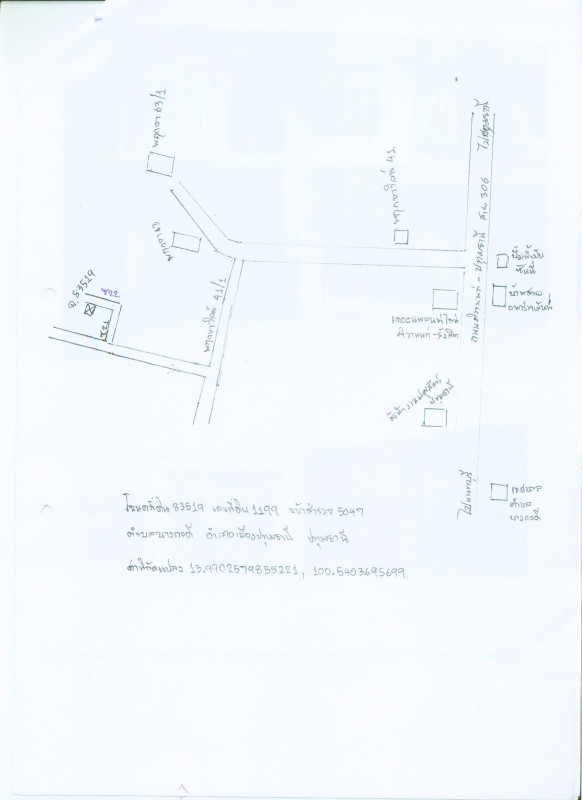 ไปปทุมธานี
ถนนติวานนท์ - ปทุมธานี สาย 306
ไปนนทบุรี
พฤกษา 63/1
พฤกษา 63
พฤกษาวิลล์ 41
พฤกษาวิลล์ 41/1
ฉ. 83519
ซ.22
ซ.21
ปั๊มน้ำมัน
บ้านสวย
เดอะแพลนท์ใหม่
ติวานนท์ - รังสิต
ปทุมธานี
เทศบาล
ตำบล
บางกะดี
โฉนดที่ดิน 83519 เลขที่ดิน 1199 หน้าสำรวจ 5047
ตำบลบางกะดี อำเภอเมืองปทุมธานี ปทุมธานี
ค่าพิกัดแปลง 13.9902579855221, 100.5403695699